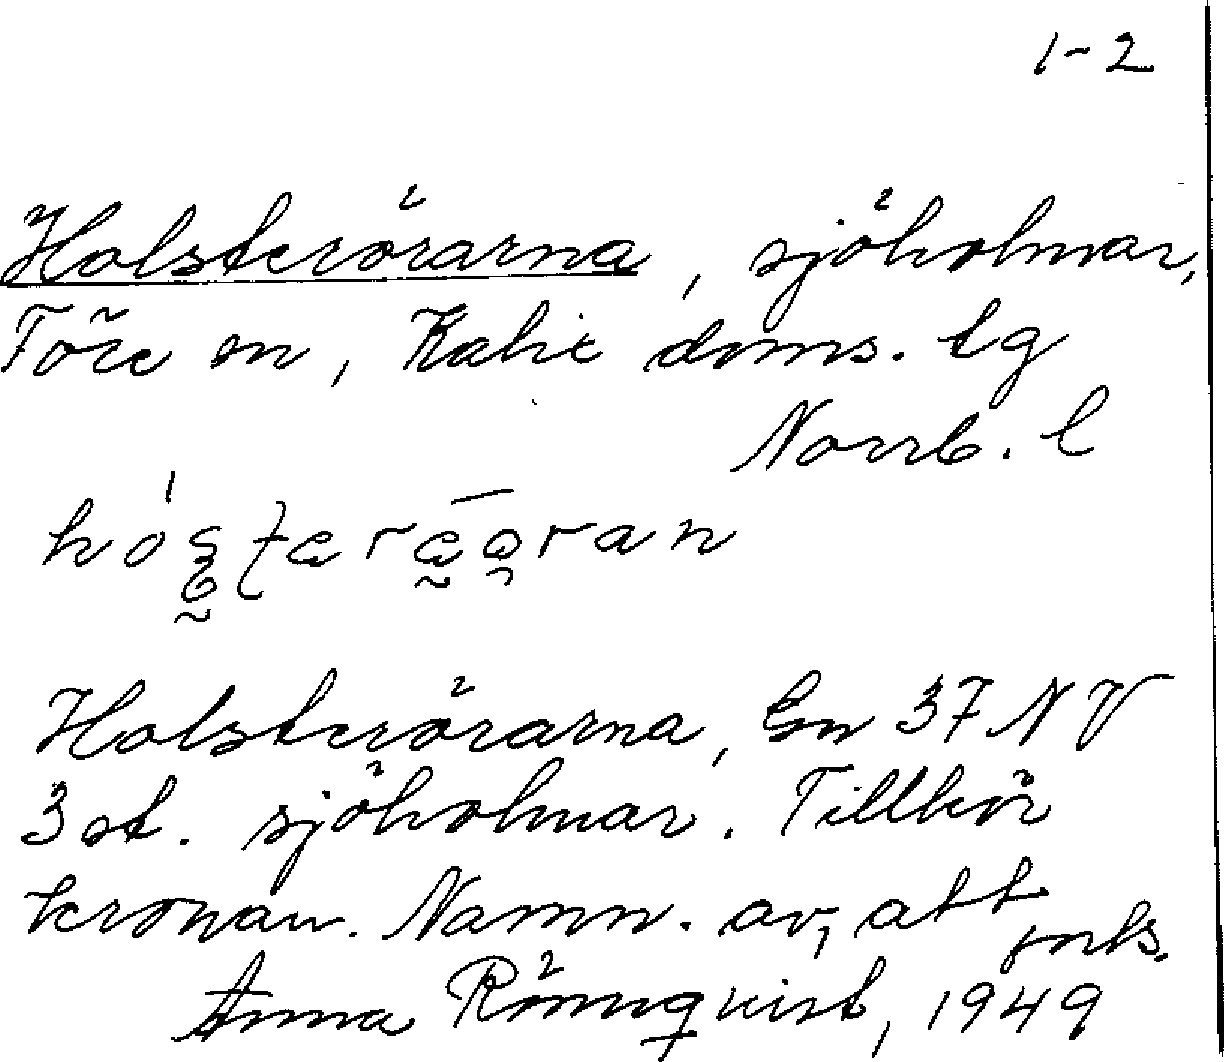 1-2
Holsterörarna, sjöholmar,
Töre sn, Kalix doms. tg
Norrb. l
Holsterörarna, Gn 37 NV
3 st. sjöholmar. Tillhör
kronan. Namn. av, att
forts.
Anna Rönnqvist, 1949